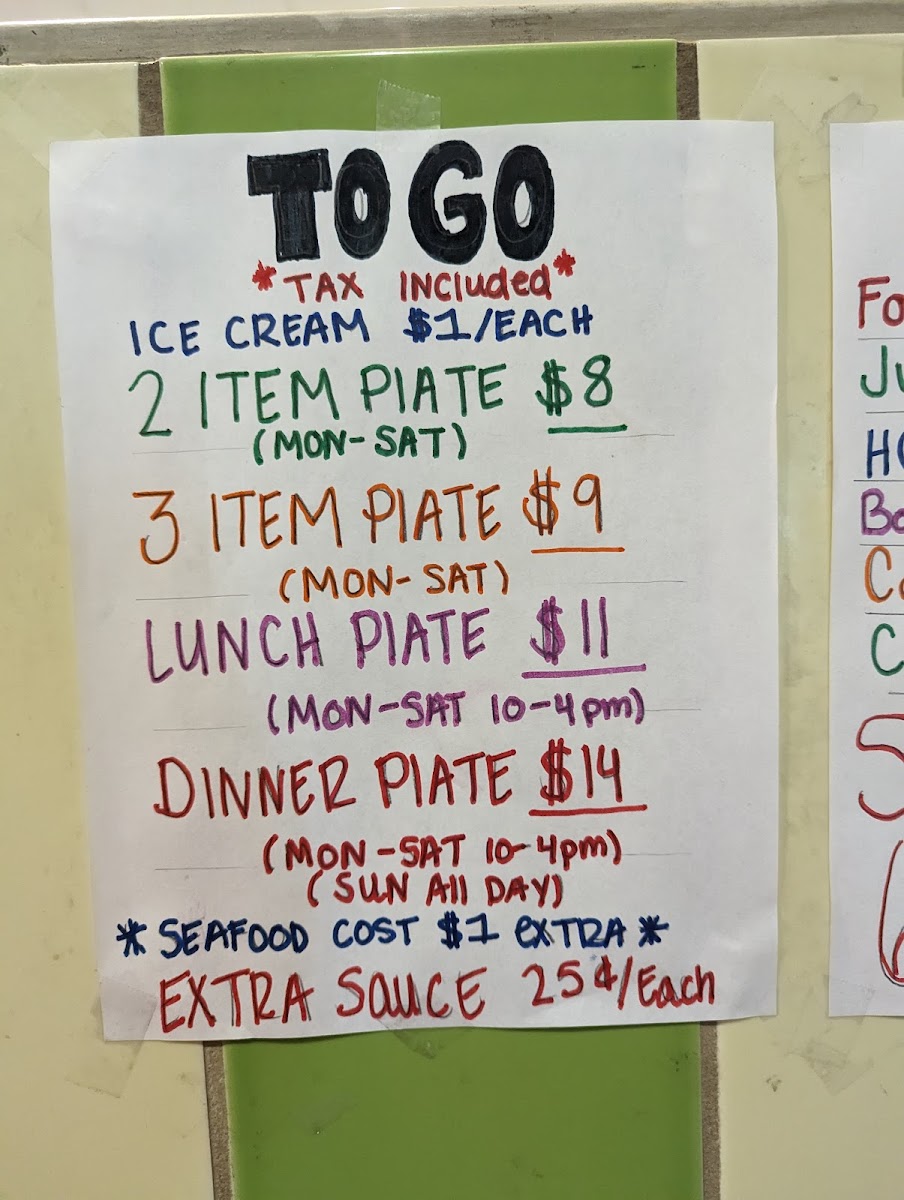 TO GO
*TAX INCluded*
ICE CREAM $1/EACH
2 ITEM PlATE $8
(MON-SAT)
3 ITEM PlATE $9
(MON-SAT)
LUNCH PlATE $11
(MON-SAT 10-4pm)
DINNER PlATE $14
(MON-SAT 10-4pm)
(SUN All DAY)
*SEAFOOD COST $1 eXTRA*
EXTRA SAUCE 25¢/Each